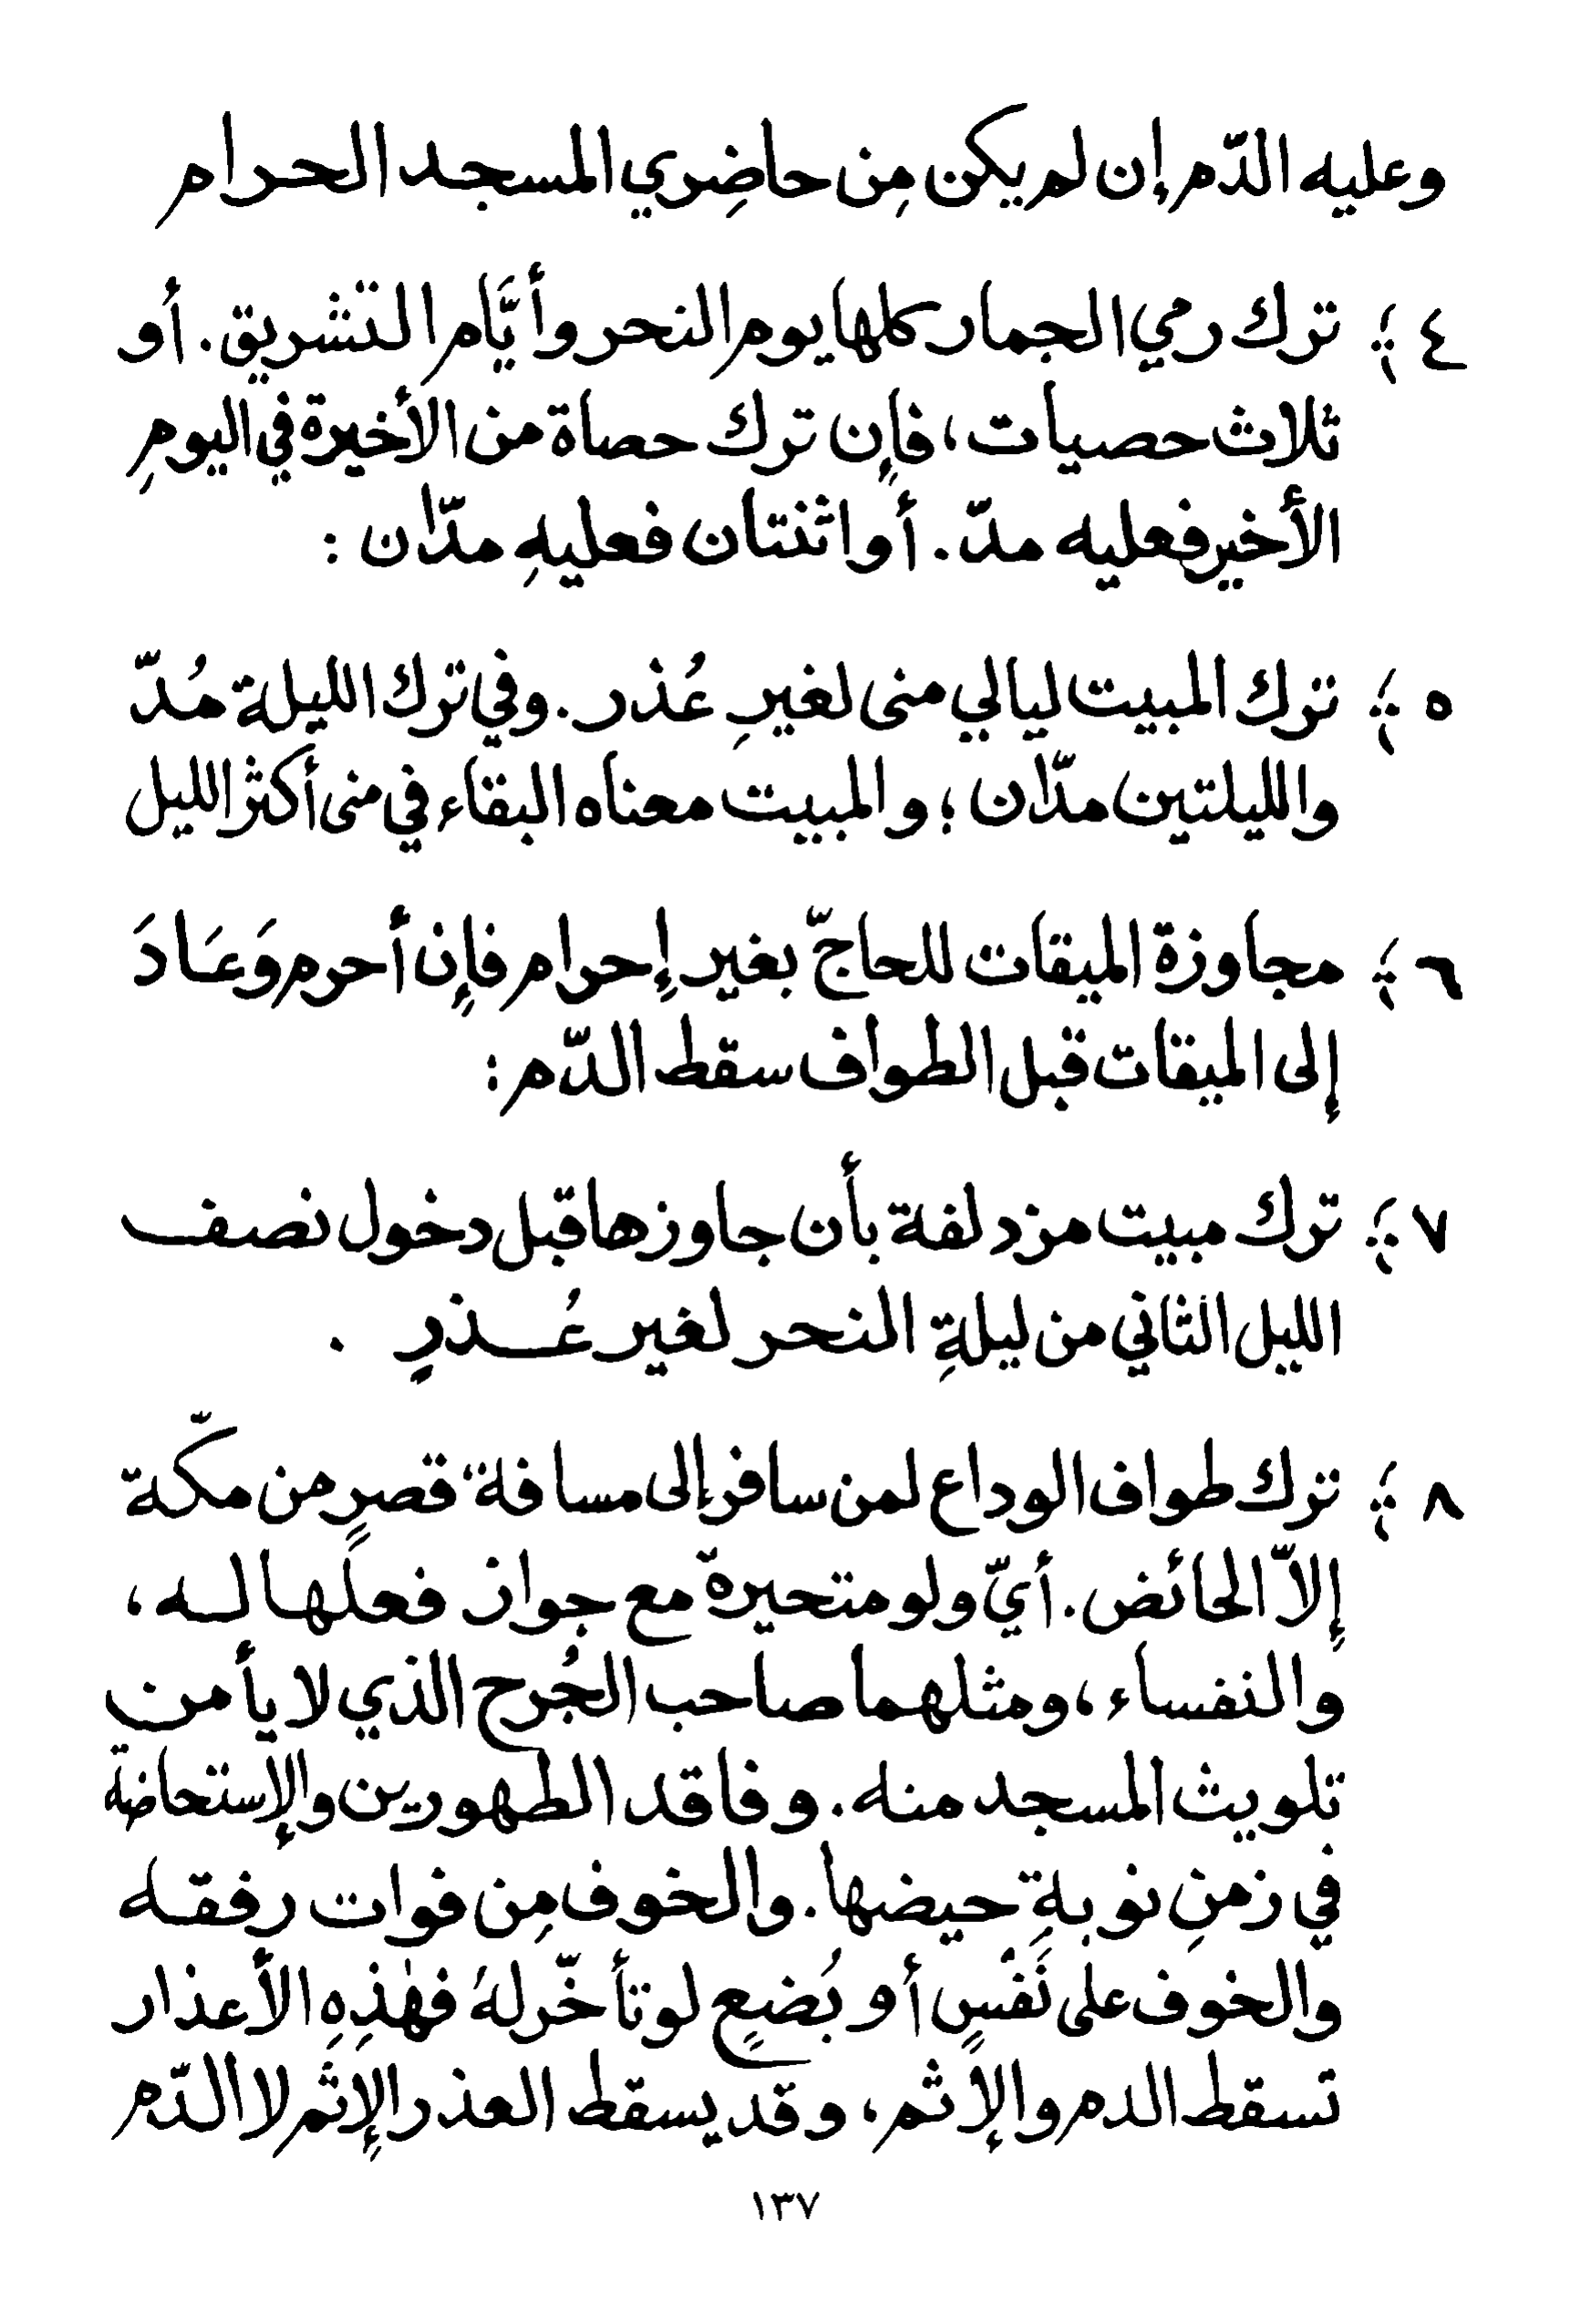 وعليه الدّم إن لم يكن مِن حاضِري المسجد الحرام
٤ ؛ ترك رمي الجمار كلها يوم النحر وأيَّام التشريق. أو
ثلاث حصيات، فإن ترك حصاة من الأخيرة في اليومِ
الأخير فعليه مدّ. أو اثنتان فعليهِ مدّان :
٥ ؛ ترك المبيت ليالي منى لغيرِ عُذر. وفي ترك الليلة مُدّ
والليلتين مدّان ؛ والمبيت معناه البقاء في منى أكثر الليل
٦ ؛ مجاوزة الميقات للحاجّ بغير إحرام فإن أحرم وَعَادَ
إلى الميقات قبل الطواف سقط الدّم :
٧ ؛ ترك مبيت مزدلفة بأن جاوزها قبل دخول نصف
الليل الثاني من ليلةِ النحر لغير عُـذرٍ .
٨ ؛ ترك طواف الوداع لمن سافر إلى مسافة قصرٍ من مكّة
إلاّ الحائض. أيّ ولو متحيرة مع جواز فعلها لـه ،
والنفساء ، ومثلهما صاحب الجُرح الذي لا يأمن
تلويث المسجد منه. وفاقد الطهورين والإستحاضة
في زمنِ نوبةِ حيضها. والخوف مِن فوات رفقه
والخوف على نَفْسٍ أو بُضعٍ لو تأخّر لهُ فهٰذِهِ الأعذار
تسقط الدم والإثم، وقد يسقط العذر الإثم لا الدّم
١٣٧